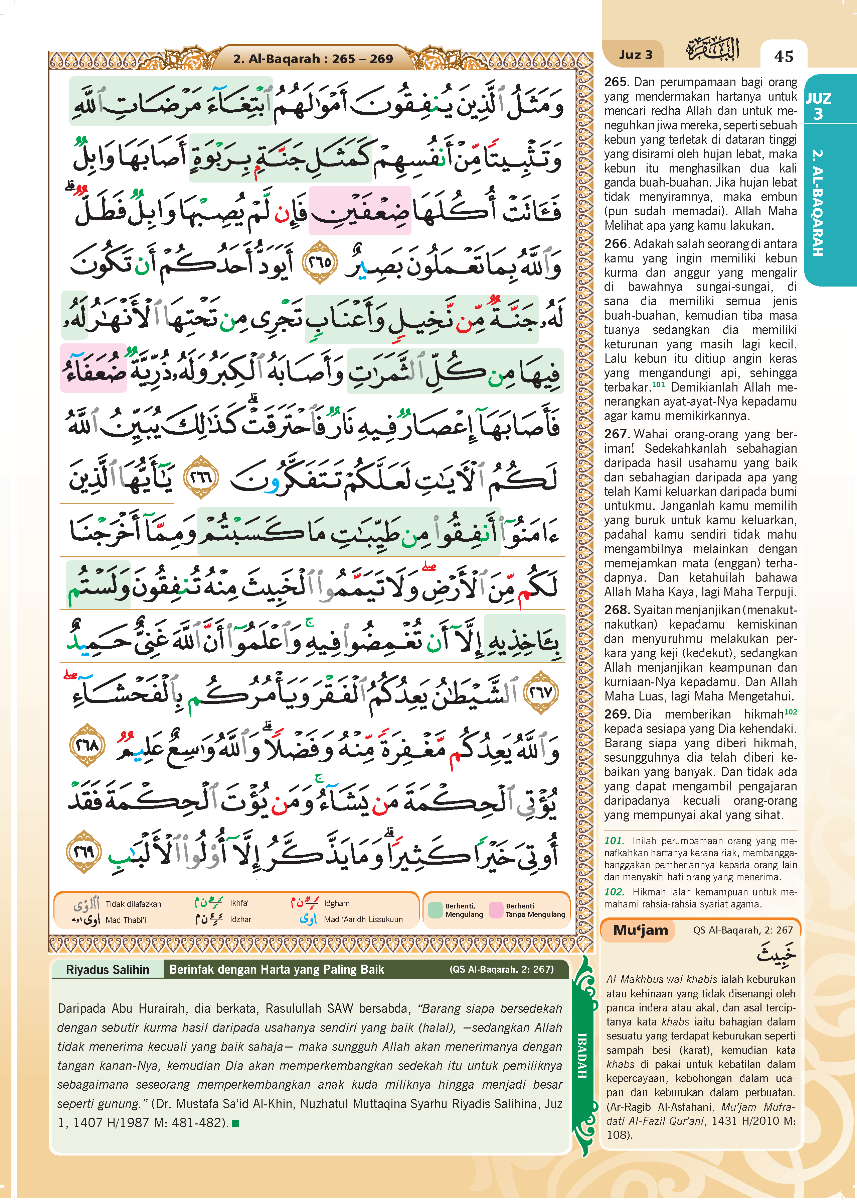 2. Al-Baqarah : 265 – 269
Juz 3
البقرة
45
JUZ
3
2. AL-BAQARAH
وَمَثَلُ ٱلَّذِينَ يُنفِقُونَ أَمْوَٰلَهُمُ ٱبْتِغَآءَ مَرْضَاتِ ٱللَّهِ
وَتَثْبِيتًا مِّنْ أَنفُسِهِمْ كَمَثَلِ جَنَّةٍۭ بِرَبْوَةٍ أَصَابَهَا وَابِلٌ
فَـَٔاتَتْ أُكُلَهَا ضِعْفَيْنِ فَإِن لَّمْ يُصِبْهَا وَابِلٌ فَطَلٌّ ۗ
وَٱللَّهُ بِمَا تَعْمَلُونَ بَصِيرٌ ٢٦٥ أَيَوَدُّ أَحَدُكُمْ أَن تَكُونَ
لَهُۥ جَنَّةٌ مِّن نَّخِيلٍ وَأَعْنَابٍ تَجْرِى مِن تَحْتِهَا ٱلْأَنْهَٰرُ لَهُۥ
فِيهَا مِن كُلِّ ٱلثَّمَرَٰتِ وَأَصَابَهُ ٱلْكِبَرُ وَلَهُۥ ذُرِّيَّةٌ ضُعَفَآءُ
فَأَصَابَهَآ إِعْصَارٌ فِيهِ نَارٌ فَٱحْتَرَقَتْ ۗ كَذَٰلِكَ يُبَيِّنُ ٱللَّهُ
لَكُمُ ٱلْـَٔايَٰتِ لَعَلَّكُمْ تَتَفَكَّرُونَ ٢٦٦ يَٰٓأَيُّهَا ٱلَّذِينَ
ءَامَنُوٓا۟ أَنفِقُوا۟ مِن طَيِّبَٰتِ مَا كَسَبْتُمْ وَمِمَّآ أَخْرَجْنَا
لَكُم مِّنَ ٱلْأَرْضِ ۖ وَلَا تَيَمَّمُوا۟ ٱلْخَبِيثَ مِنْهُ تُنفِقُونَ وَلَسْتُم
بِـَٔاخِذِيهِ إِلَّآ أَن تُغْمِضُوا۟ فِيهِ ۚ وَٱعْلَمُوٓا۟ أَنَّ ٱللَّهَ غَنِىٌّ حَمِيدٌ
٢٦٧ ٱلشَّيْطَٰنُ يَعِدُكُمُ ٱلْفَقْرَ وَيَأْمُرُكُم بِٱلْفَحْشَآءِ ۖ
وَٱللَّهُ يَعِدُكُم مَّغْفِرَةً مِّنْهُ وَفَضْلًا ۗ وَٱللَّهُ وَٰسِعٌ عَلِيمٌ ٢٦٨
يُؤْتِى ٱلْحِكْمَةَ مَن يَشَآءُ ۚ وَمَن يُؤْتَ ٱلْحِكْمَةَ فَقَدْ
أُوتِىَ خَيْرًا كَثِيرًا ۗ وَمَا يَذَّكَّرُ إِلَّآ أُو۟لُوا۟ ٱلْأَلْبَٰبِ ٢٦٩
Tidak dilafazkan
Ikhfa'
Idgham
Mad Thabi'i
Idzhar
Mad 'Aaridh Lissukuun
Berhenti,
Mengulang
Berhenti
Tanpa Mengulang
265. Dan perumpamaan bagi orang
yang mendermakan hartanya untuk
mencari redha Allah dan untuk me-
neguhkan jiwa mereka, seperti sebuah
kebun yang terletak di dataran tinggi
yang disirami oleh hujan lebat, maka
kebun itu menghasilkan dua kali
ganda buah-buahan. Jika hujan lebat
tidak menyiramnya, maka embun
(pun sudah memadai). Allah Maha
Melihat apa yang kamu lakukan.
266. Adakah salah seorang di antara
kamu yang ingin memiliki kebun
kurma dan anggur yang mengalir
di bawahnya sungai-sungai, di
sana dia memiliki semua jenis
buah-buahan, kemudian tiba masa
tuanya sedangkan dia memiliki
keturunan yang masih lagi kecil.
Lalu kebun itu ditiup angin keras
yang mengandungi api, sehingga
terbakar.101 Demikianlah Allah me-
nerangkan ayat-ayat-Nya kepadamu
agar kamu memikirkannya.
267. Wahai orang-orang yang ber-
iman! Sedekahkanlah sebahagian
daripada hasil usahamu yang baik
dan sebahagian daripada apa yang
telah Kami keluarkan daripada bumi
untukmu. Janganlah kamu memilih
yang buruk untuk kamu keluarkan,
padahal kamu sendiri tidak mahu
mengambilnya melainkan dengan
memejamkan mata (enggan) terha-
dapnya. Dan ketahuilah bahawa
Allah Maha Kaya, lagi Maha Terpuji.
268. Syaitan menjanjikan (menakut-
nakutkan) kepadamu kemiskinan
dan menyuruhmu melakukan per-
kara yang keji (kedekut), sedangkan
Allah menjanjikan keampunan dan
kurniaan-Nya kepadamu. Dan Allah
Maha Luas, lagi Maha Mengetahui.
269. Dia memberikan hikmah102
kepada sesiapa yang Dia kehendaki.
Barang siapa yang diberi hikmah,
sesungguhnya dia telah diberi ke-
baikan yang banyak. Dan tidak ada
yang dapat mengambil pengajaran
daripadanya kecuali orang-orang
yang mempunyai akal yang sihat.
101. Inilah perumpamaan orang yang me-
nafkahkan hartanya kerana riak, membangga-
hanggakan pemberiannya kepada orang lain
dan menyakiti hati orang yang menerima.
102. Hikmah ialah kemampuan untuk me-
mahami rahsia-rahsia syariat agama.
Mu‘jam
QS Al-Baqarah, 2: 267
خَبِيثَ
Al Makhbus wal khabis ialah keburukan
atau kehinaan yang tidak disenangi oleh
panca indera atau akal, dan asal tercip-
tanya kata khabs iaitu bahagian dalam
sesuatu yang terdapat keburukan seperti
sampah besi (karat), kemudian kata
khabs di pakai untuk kebatilan dalam
kepercayaan, kebohongan dalam uca-
pan dan keburukan dalam perbuatan.
(Ar-Ragib Al-Asfahani, Mu'jam Mufra-
dati Al-Fazil Qur'ani, 1431 H/2010 M:
108).
Riyadus Salihin
Berinfak dengan Harta yang Paling Baik
(QS Al-Baqarah. 2: 267)
Daripada Abu Hurairah, dia berkata, Rasulullah SAW bersabda, “Barang siapa bersedekah
dengan sebutir kurma hasil daripada usahanya sendiri yang baik (halal), —sedangkan Allah
tidak menerima kecuali yang baik sahaja— maka sungguh Allah akan menerimanya dengan
tangan kanan-Nya, kemudian Dia akan memperkembangkan sedekah itu untuk pemiliknya
sebagaimana seseorang memperkembangkan anak kuda miliknya hingga menjadi besar
seperti gunung.” (Dr. Mustafa Sa'id Al-Khin, Nuzhatul Muttaqina Syarhu Riyadis Salihina, Juz
1, 1407 H/1987 M: 481-482).
IBADAH